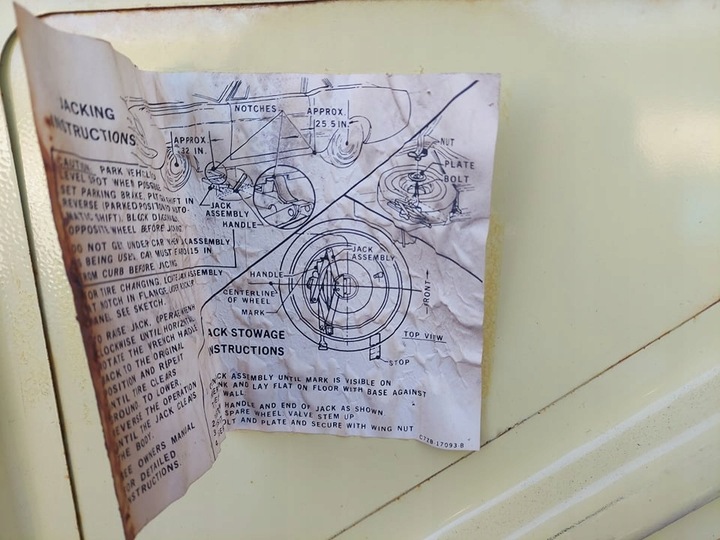 JACKING
INSTRUCTIONS
CAUTION: PARK VEHICLE
LEVEL SPOT WHEN POSSIBLE
SET PARKING BRAKE, PUT SHIFT IN
REVERSE (PARKED POSITION AUTO-
MATIC SHIFT). BLOCK DIAGONAL
OPPOSITE WHEEL BEFORE JACKING
DO NOT GET UNDER CAR WHEN JACK ASSEMBLY
BEING USED, CAR MUST 15 IN.
FROM CURB BEFORE JACKING
FOR TIRE CHANGING, JACK ASSEMBLY
AT NOTCH IN FLANGE,
PANEL. SEE SKETCH.
TO RAISE JACK, OPERATE
CLOCKWISE UNTIL HORIZONTAL
ROTATE THE WRENCH HANDLE
BACK TO THE ORIGINAL
POSITION AND REPEAT
UNTIL TIRE CLEARS
GROUND. TO LOWER,
REVERSE THE OPERATION
UNTIL THE JACK CLEARS
THE BODY.
SEE OWNERS MANUAL
FOR DETAILED
INSTRUCTIONS.
NOTCHES
APPROX.
25.5 IN.
APPROX.
32 IN.
JACK
ASSEMBLY
HANDLE
NUT
PLATE
BOLT
JACK
ASSEMBLY
HANDLE
CENTERLINE
OF WHEEL
MARK
FRONT
TOP VIEW
STOP
JACK STOWAGE
INSTRUCTIONS
JACK ASSEMBLY UNTIL MARK IS VISIBLE ON
AND LAY FLAT ON FLOOR WITH BASE AGAINST
WALL
2. HANDLE AND END OF JACK AS SHOWN
3. SPARE WHEEL, VALVE STEM UP
BOLT AND PLATE AND SECURE WITH WING NUT
17093-B